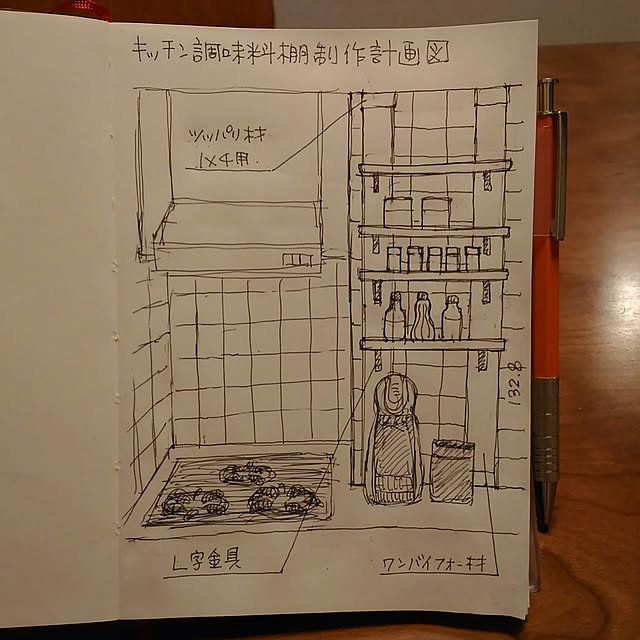 キッチン調味料棚制作計画図
ツッパリ材
1×4用.
132.8
L字金具
ワンバイフォー材